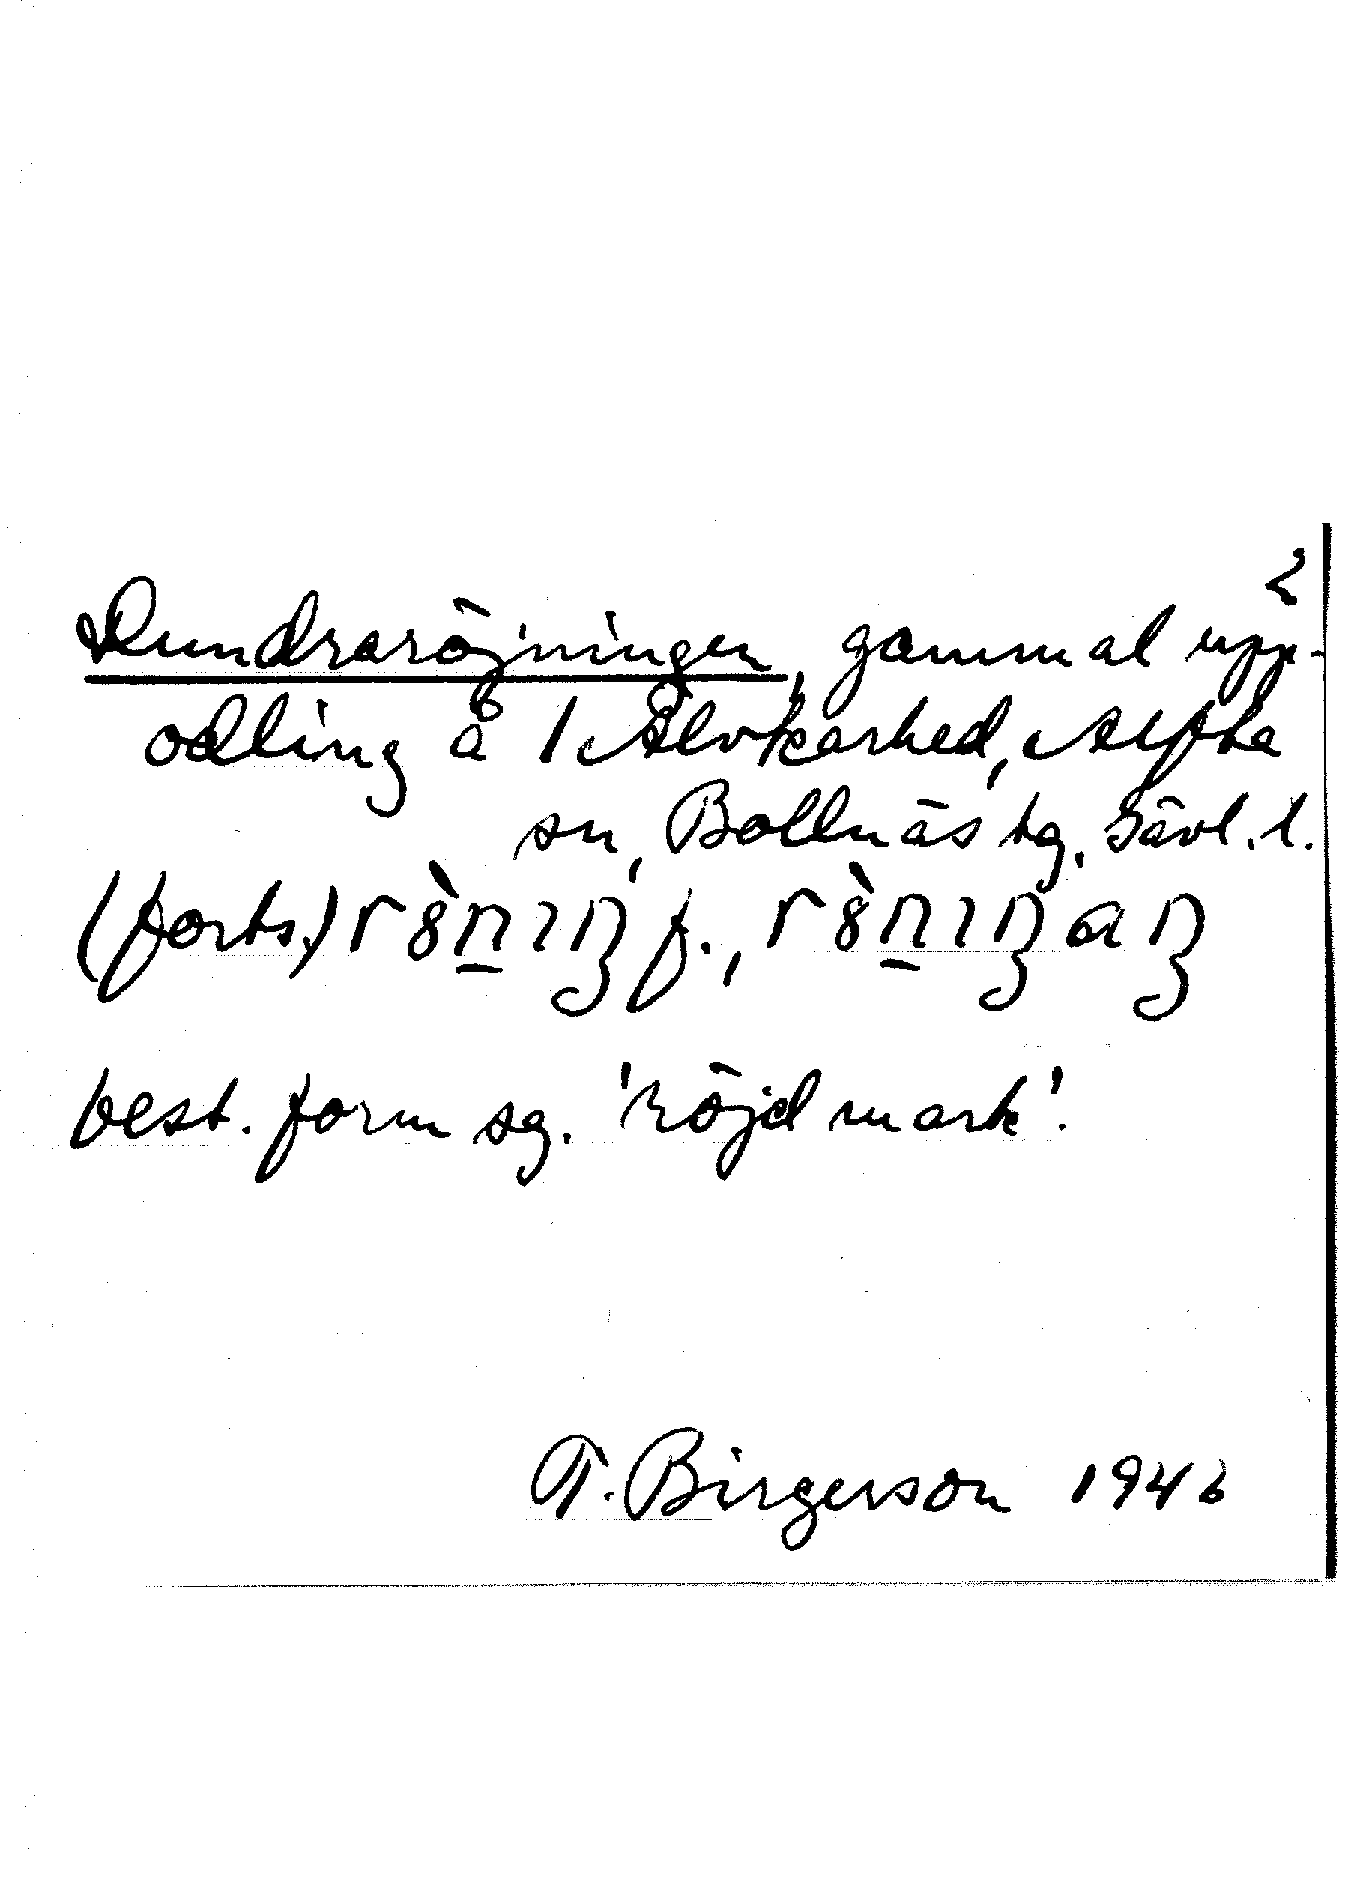 2
Dundraröjningen, gammal upp-
odling å 1 Älvkarhed, Alfta
sn, Bollnäs tg. Gävl. l.
(forts.) r f., r
best. form sg. 'röjd mark'.
T. Birgerson 1946